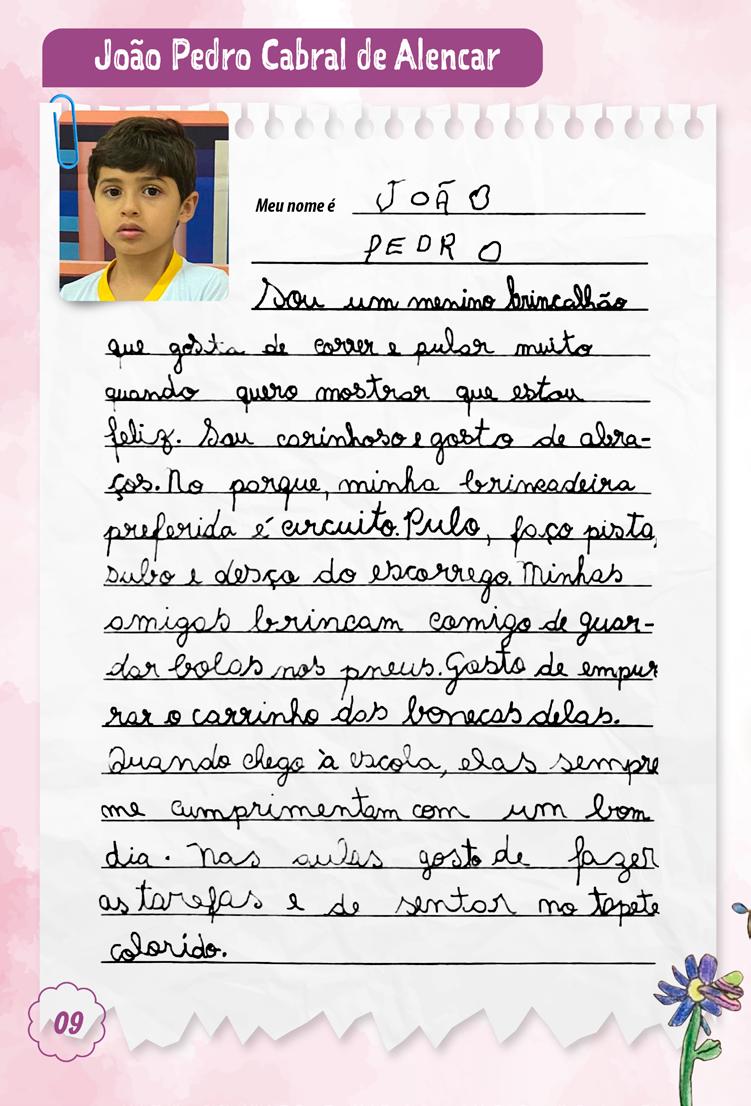 João Pedro Cabral de Alencar
Meu nome é JOÃO
PEDRO
Sou um menino brincalhão
que gosta de correr e pular muito
quando quero mostrar que estou
feliz. Sou carinhoso e gosto de abra-
ços. No parque, minha brincadeira
preferida é circuito. Pulo, faço pista,
subo e desço do escorrego. Minhas
amigas brincam comigo de guar-
dar bolas nos pneus. Gosto de empur
rar o carrinho das bonecas delas.
Quando chego à escola, elas sempre
me cumprimentam com um bom
dia. Nas aulas gosto de fazer
as tarefas e de sentar no tapete
colorido.
09